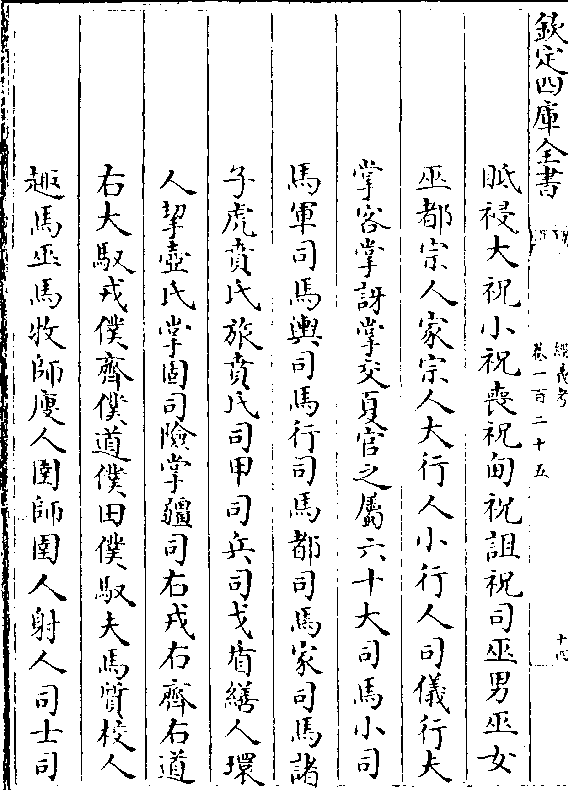 欽定四庫全書
經義考
卷一百二十五
十四
眡祲大祝小祝喪祝甸祝詛祝司巫男巫女
巫都宗人家宗人大行人小行人司儀行夫
掌客掌訝掌交夏官之屬六十大司馬小司
馬軍司馬輿司馬行司馬都司馬家司馬諸
子虎賁氏旅賁氏司甲司兵司戈盾繕人環
人挈壺氏掌固司險掌疆司右戎右齊右道
右大馭戎僕齊僕道僕田僕馭夫馬質校人
趣馬巫馬牧師廋人圉師圉人射人司士司